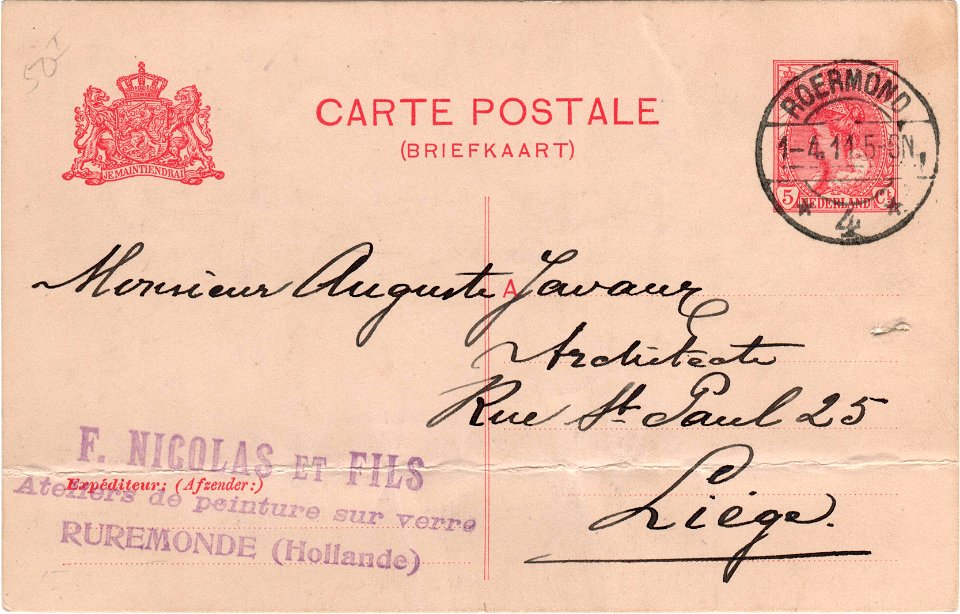 50
JE MAINTIENDRAI
CARTE POSTALE
(BRIEFKAART)
ROERMOND
1-4.11 5-9N
4
5 NEDERLAND Ct
Monsieur Auguste Javaux
A
Architecte
Rue St Paul 25
Liége.
F. NICOLAS ET FILS
Expéditeur: (Afzender:)
Ateliers de peinture sur verre
RUREMONDE (Hollande)